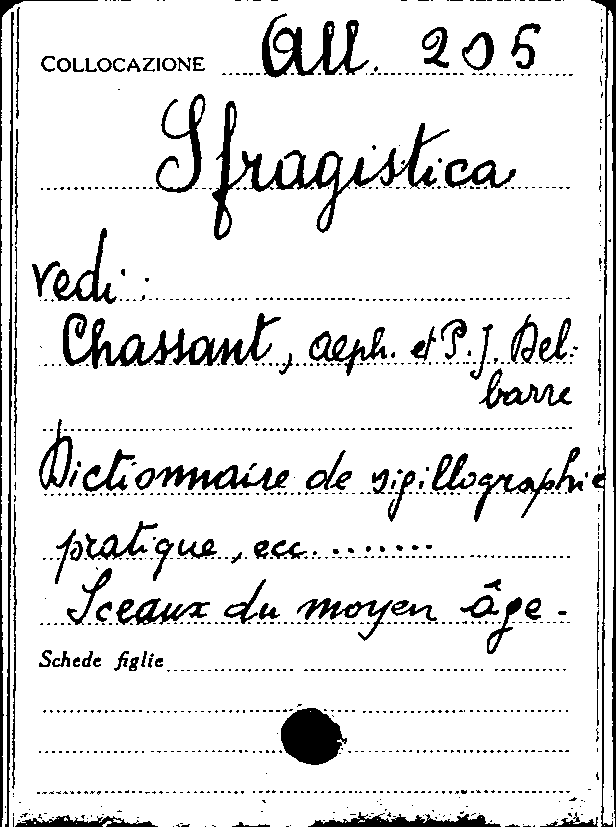 COLLOCAZIONE All. 205
Sfragistica
vedi:
Chassant, Alph. et P. J. Del-
barre
Dictionnaire de sigillographie
pratique, ecc........
Sceaux du moyen âge.
Schede figlie